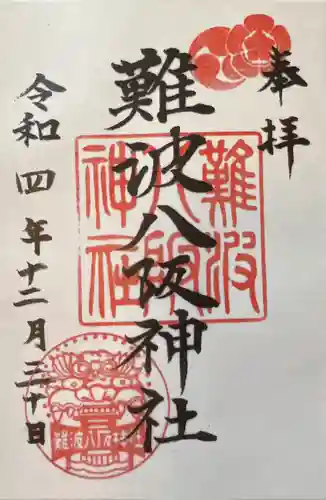 奉拝
難波八阪神社
令和四年十二月三十日
難波八阪神社
難波八阪神社